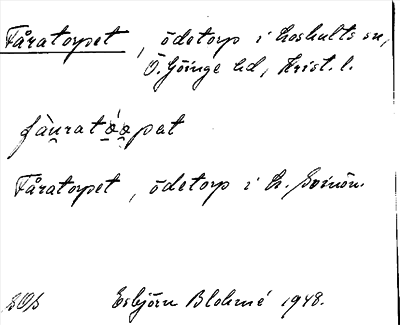 Fåratorpet, ödetorp i Loshults sn,
Ö. Göinge hd, Krist. l.
fàu̱rató̱o̱pət
Fåratorpet, ödetorp i
Esbjörn Blohmé 1948.